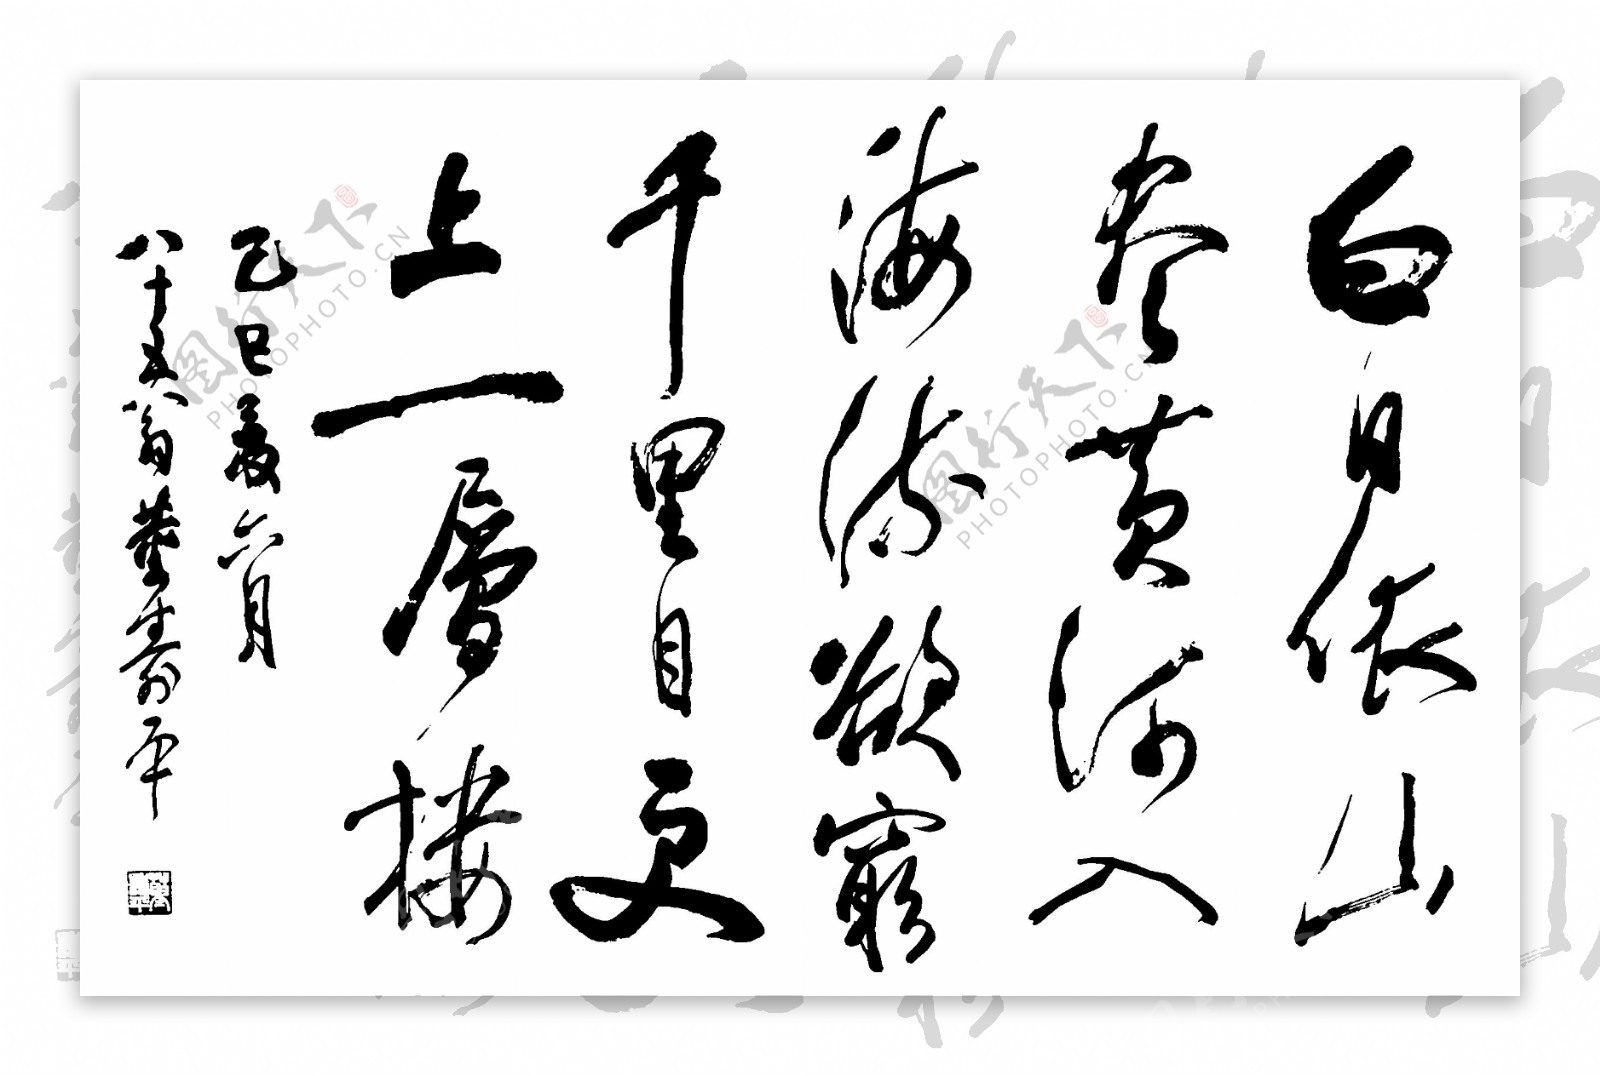 白日依山
盡黄河入
海流欲窮
千里目更
上一層樓
己巳歲六月
八十五翁董壽平
图行天下
PHOTOPHOTO.CN
图行天下
PHOTOPHOTO.CN